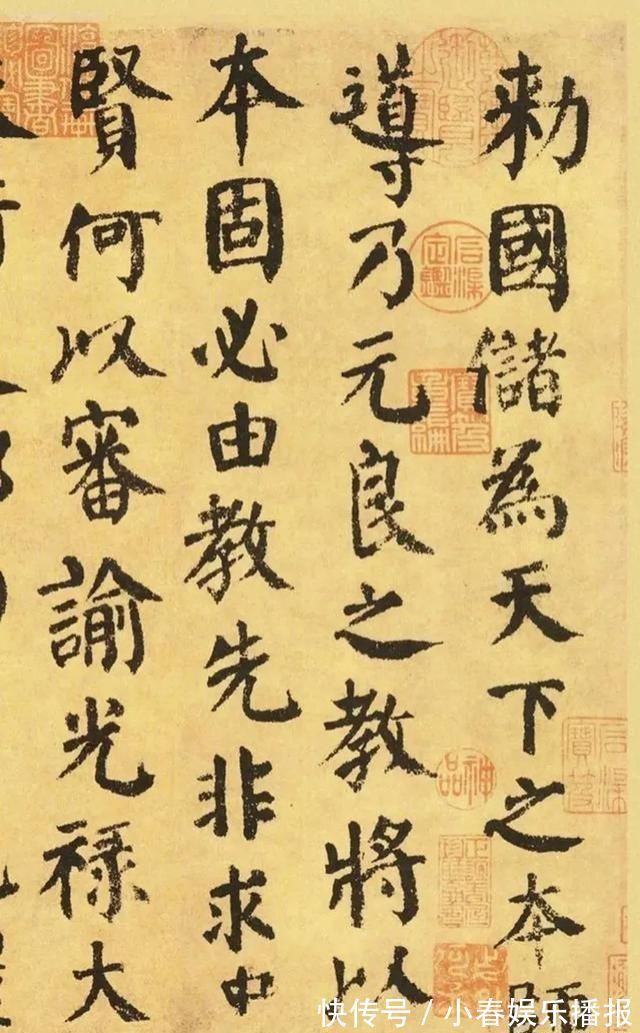 勅國儲為天下之本師
導乃元良之教將以
本固必由教先非求忠
賢何以審諭光祿大
神品
快传号 / 小春娱乐播报